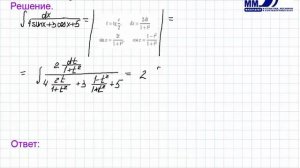 Решение.
∫ dx / (4sinx+3cosx+5) = | t = tg x/2   dx = 2dt/(1+t²)   sin x = 2t/(1+t²)   cos x = (1−t²)/(1+t²) | =
= ∫ (2 dt/(1+t²)) / (4 2t/(1+t²) + 3 (1−t²)/(1+t²) + 5) = 2
Ответ:
ММ